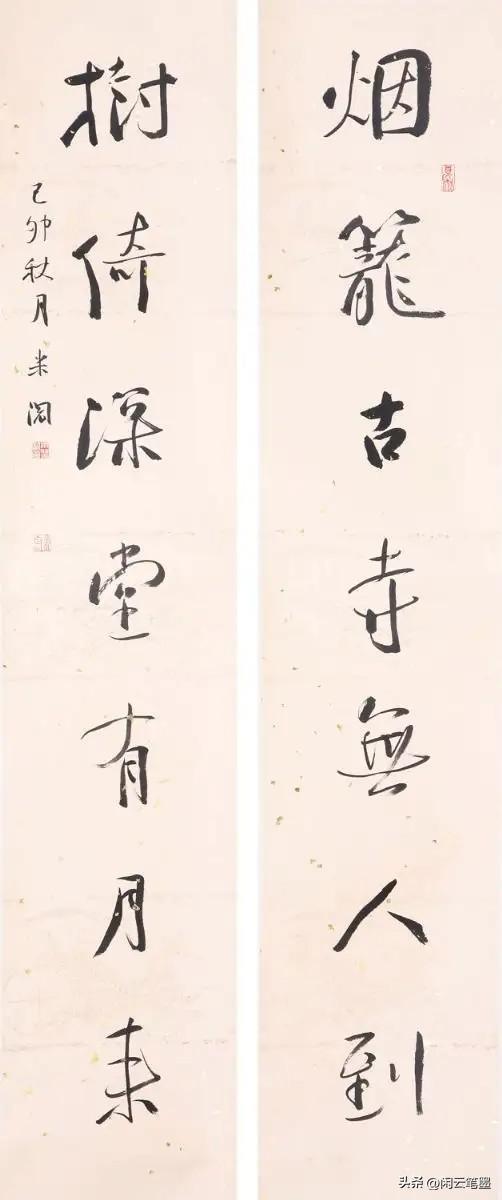 烟籠古寺無人到
樹倚深堂有月来
己卯秋月 米闊
头条@闲云笔墨